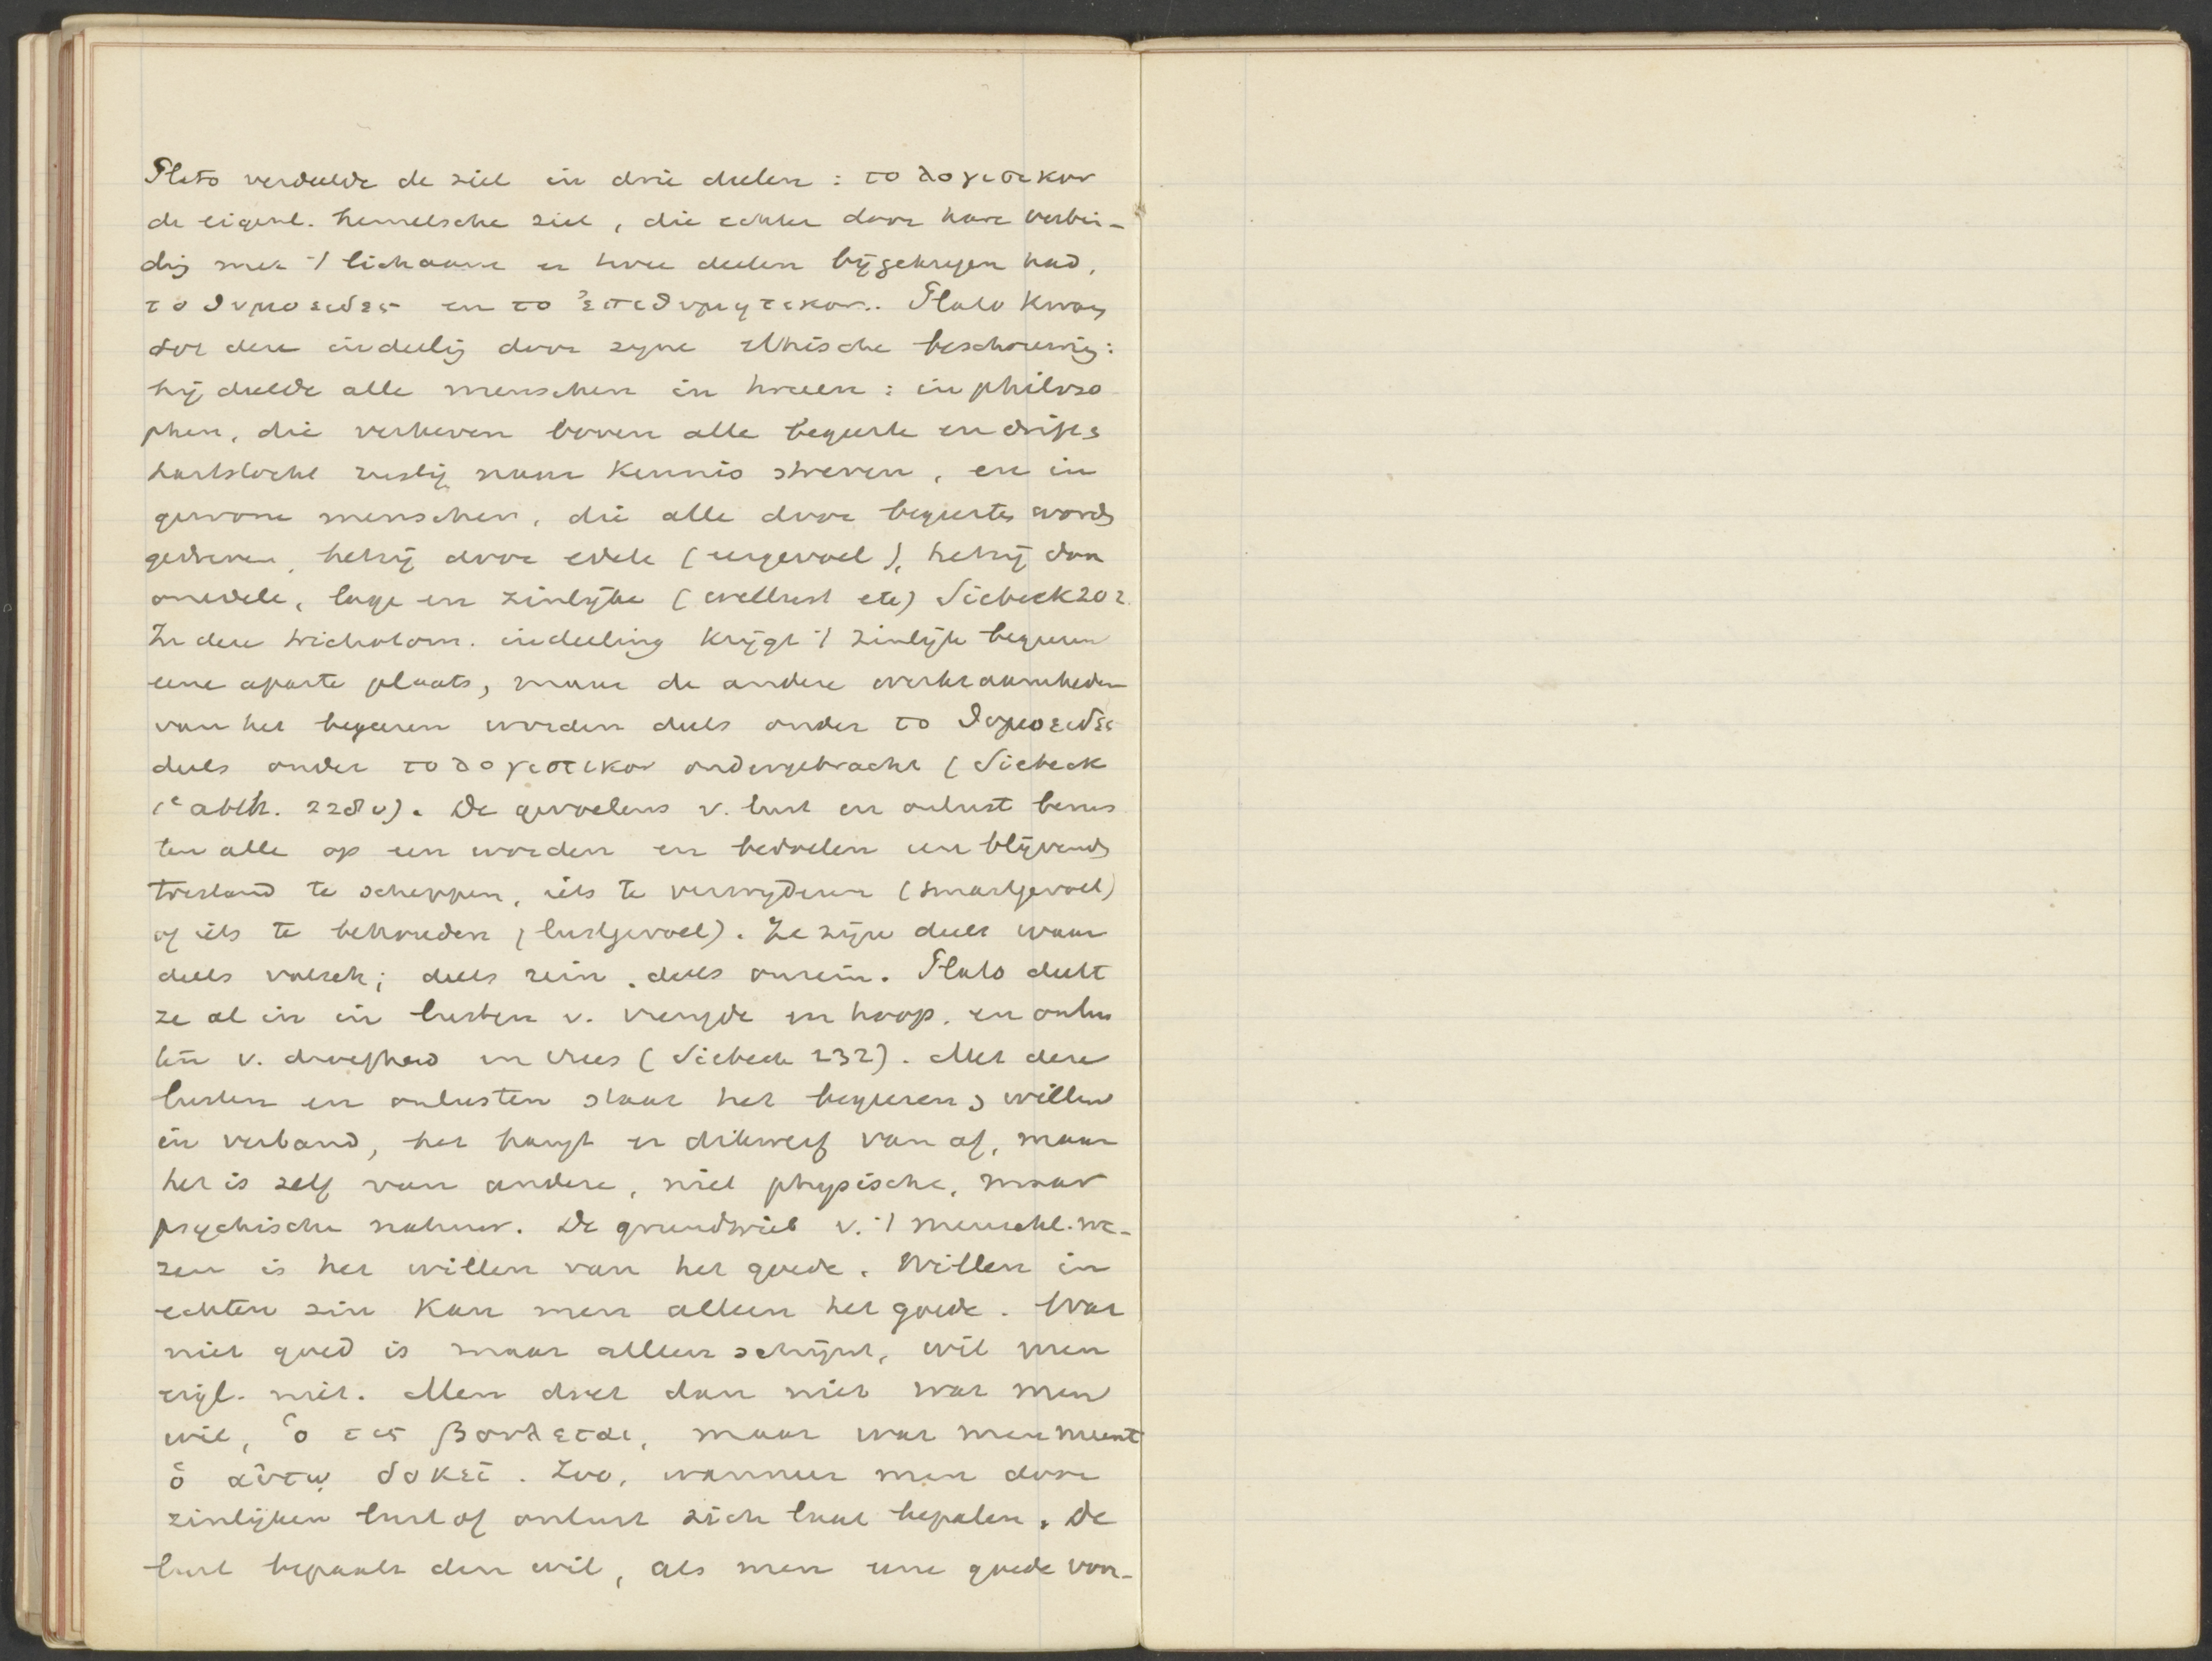 Plato verdeelde de ziel in drie deelen: το λογιστικον
de eigenl. hemelsche ziel, die echter door hare verbin-
dig met 't lichaam er twee deelen bijgekregen had,
το θυμοειδες en το ἐπιθυμητικον. Plato kwam
tot deze indeelig door zijne ethische beschouwig:
hij deelde alle menschen in tweeën: in philoso
phen, die verheven boven alle begeerte en drift,
hartstocht rustig naar kennis streven, en in
gewone menschen, die alle door begeertes words
gedreven, hetzij door edele (eergevoel), hetzij door
onedele, lage en zinlijke (wellust etc) Siebeck 202.
In deze trichotom. indeeling krijgt 't zinlijk begeeren
eene aparte plaats, maar de andere werkzaamheden
van het begeeren worden deels onder το θυμοειδες
deels onder το λογιστικον ondergebracht (Siebeck
1e abth. 228 v). De gevoelens v. lust en onlust berus
ten alle op een worden en bedoelen een blijvends
toestand te scheppen, iets te verwijderen (smartgevoel)
of iets te behouden (lustgevoel). Ze zijn deels waar
deels valsch; deels rein, deels onrein. Plato deelt
ze al in in lusten v. vreugde en hoop, en onlus
ten v. droefheid en vrees (Siebeck 232). Met deze
lusten en onlusten staat het begeeren, willen
in verband, het hangt er dikwerf van af, maar
het is zelf van andere, niet physische, maar
psychische natuur. De grondtrieb v. 't menschl. we-
zen is het willen van het goede. Willen in
echten zin kan men alleen het goede. Wat
niet goed is maar alleen schijnt, wil men
eigl. niet. Men doet dan niet wat men
wil, ὁ τις βουλεται, maar wat men meent
ὁ αὐτῳ δοκεῖ. Zoo, wanneer men door
zinlijken lust of onlust zich laat bepalen. De
lust bepaalt den wil, als men eene goede voor-